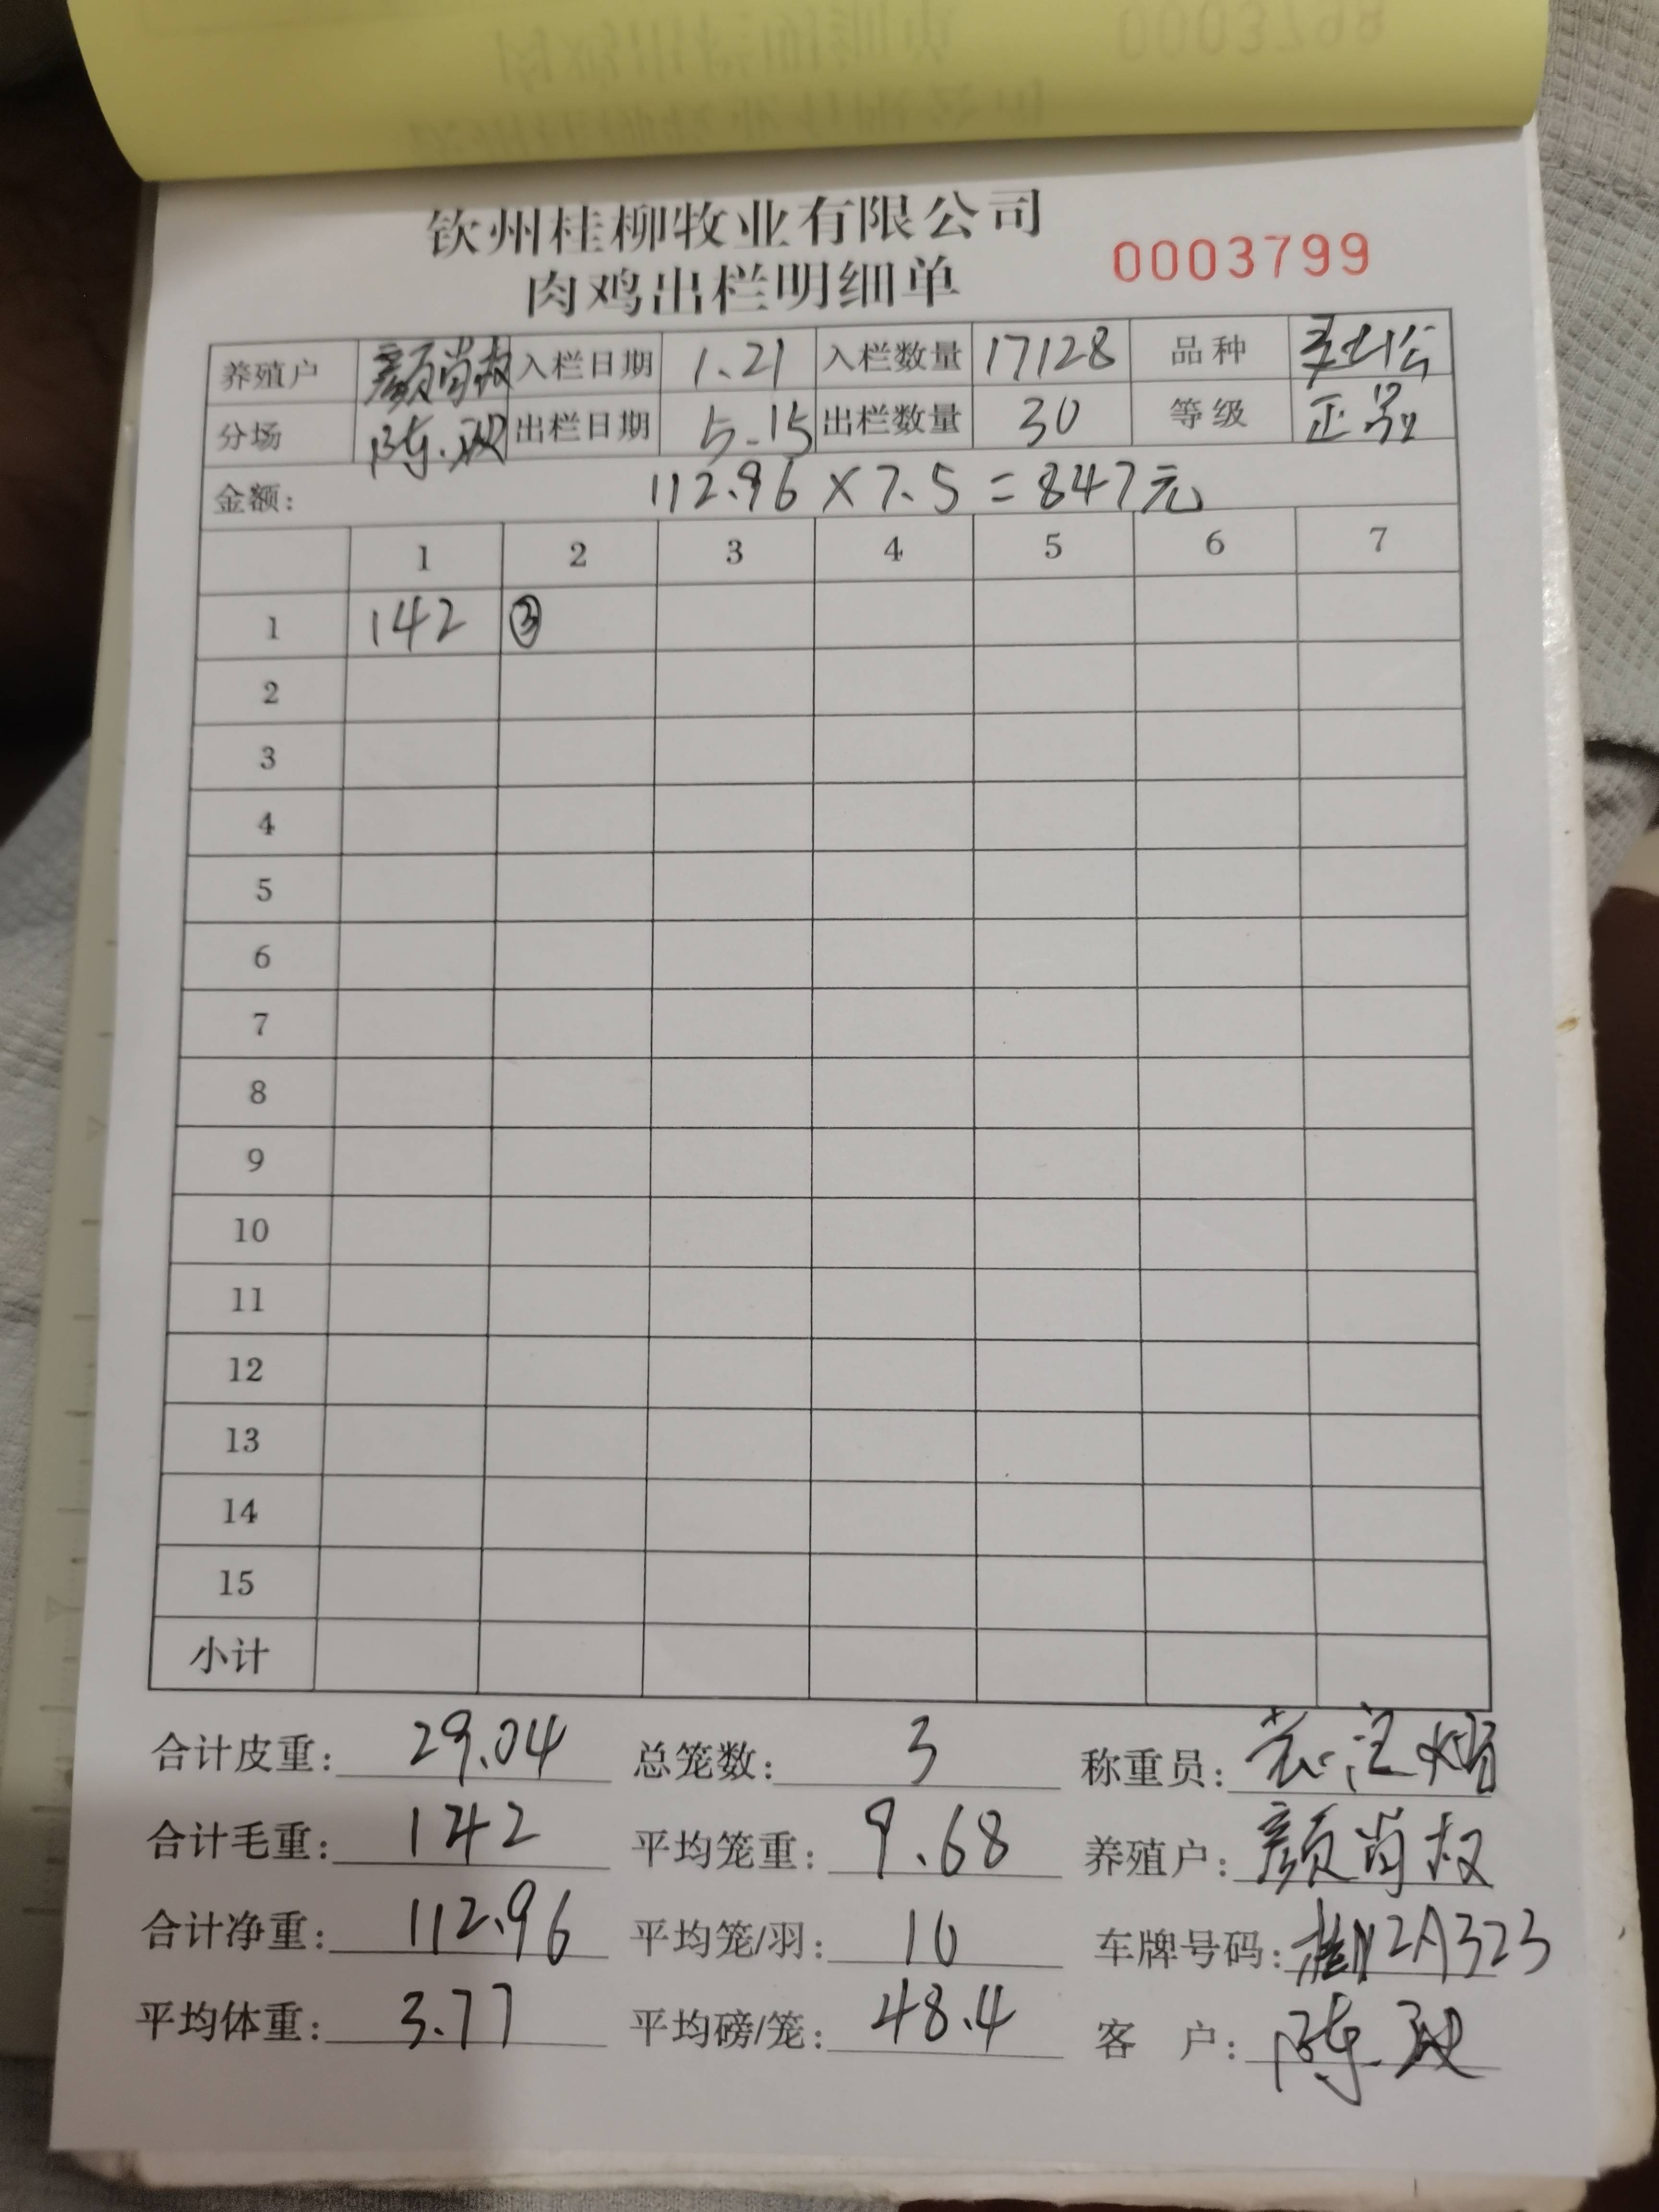 钦州桂柳牧业有限公司
肉鸡出栏明细单 0003799
养殖户 颜尚权 入栏日期 1.21 入栏数量 17128 品种
分场 陈 出栏日期 5-15 出栏数量 30 等级 正品
金额: 112.96×7.5=847元
1 2 3 4 5 6 7
1 142 ③
2
3
4
5
6
7
8
9
10
11
12
13
14
15
小计
合计皮重: 29.04 总笼数: 3 称重员:
合计毛重: 142 平均笼重: 9.68 养殖户: 颜尚权
合计净重: 112.96 平均笼/羽: 10 车牌号码: 桂N2A323
平均体重: 3.77 平均磅/笼: 48.4 客 户: 陈